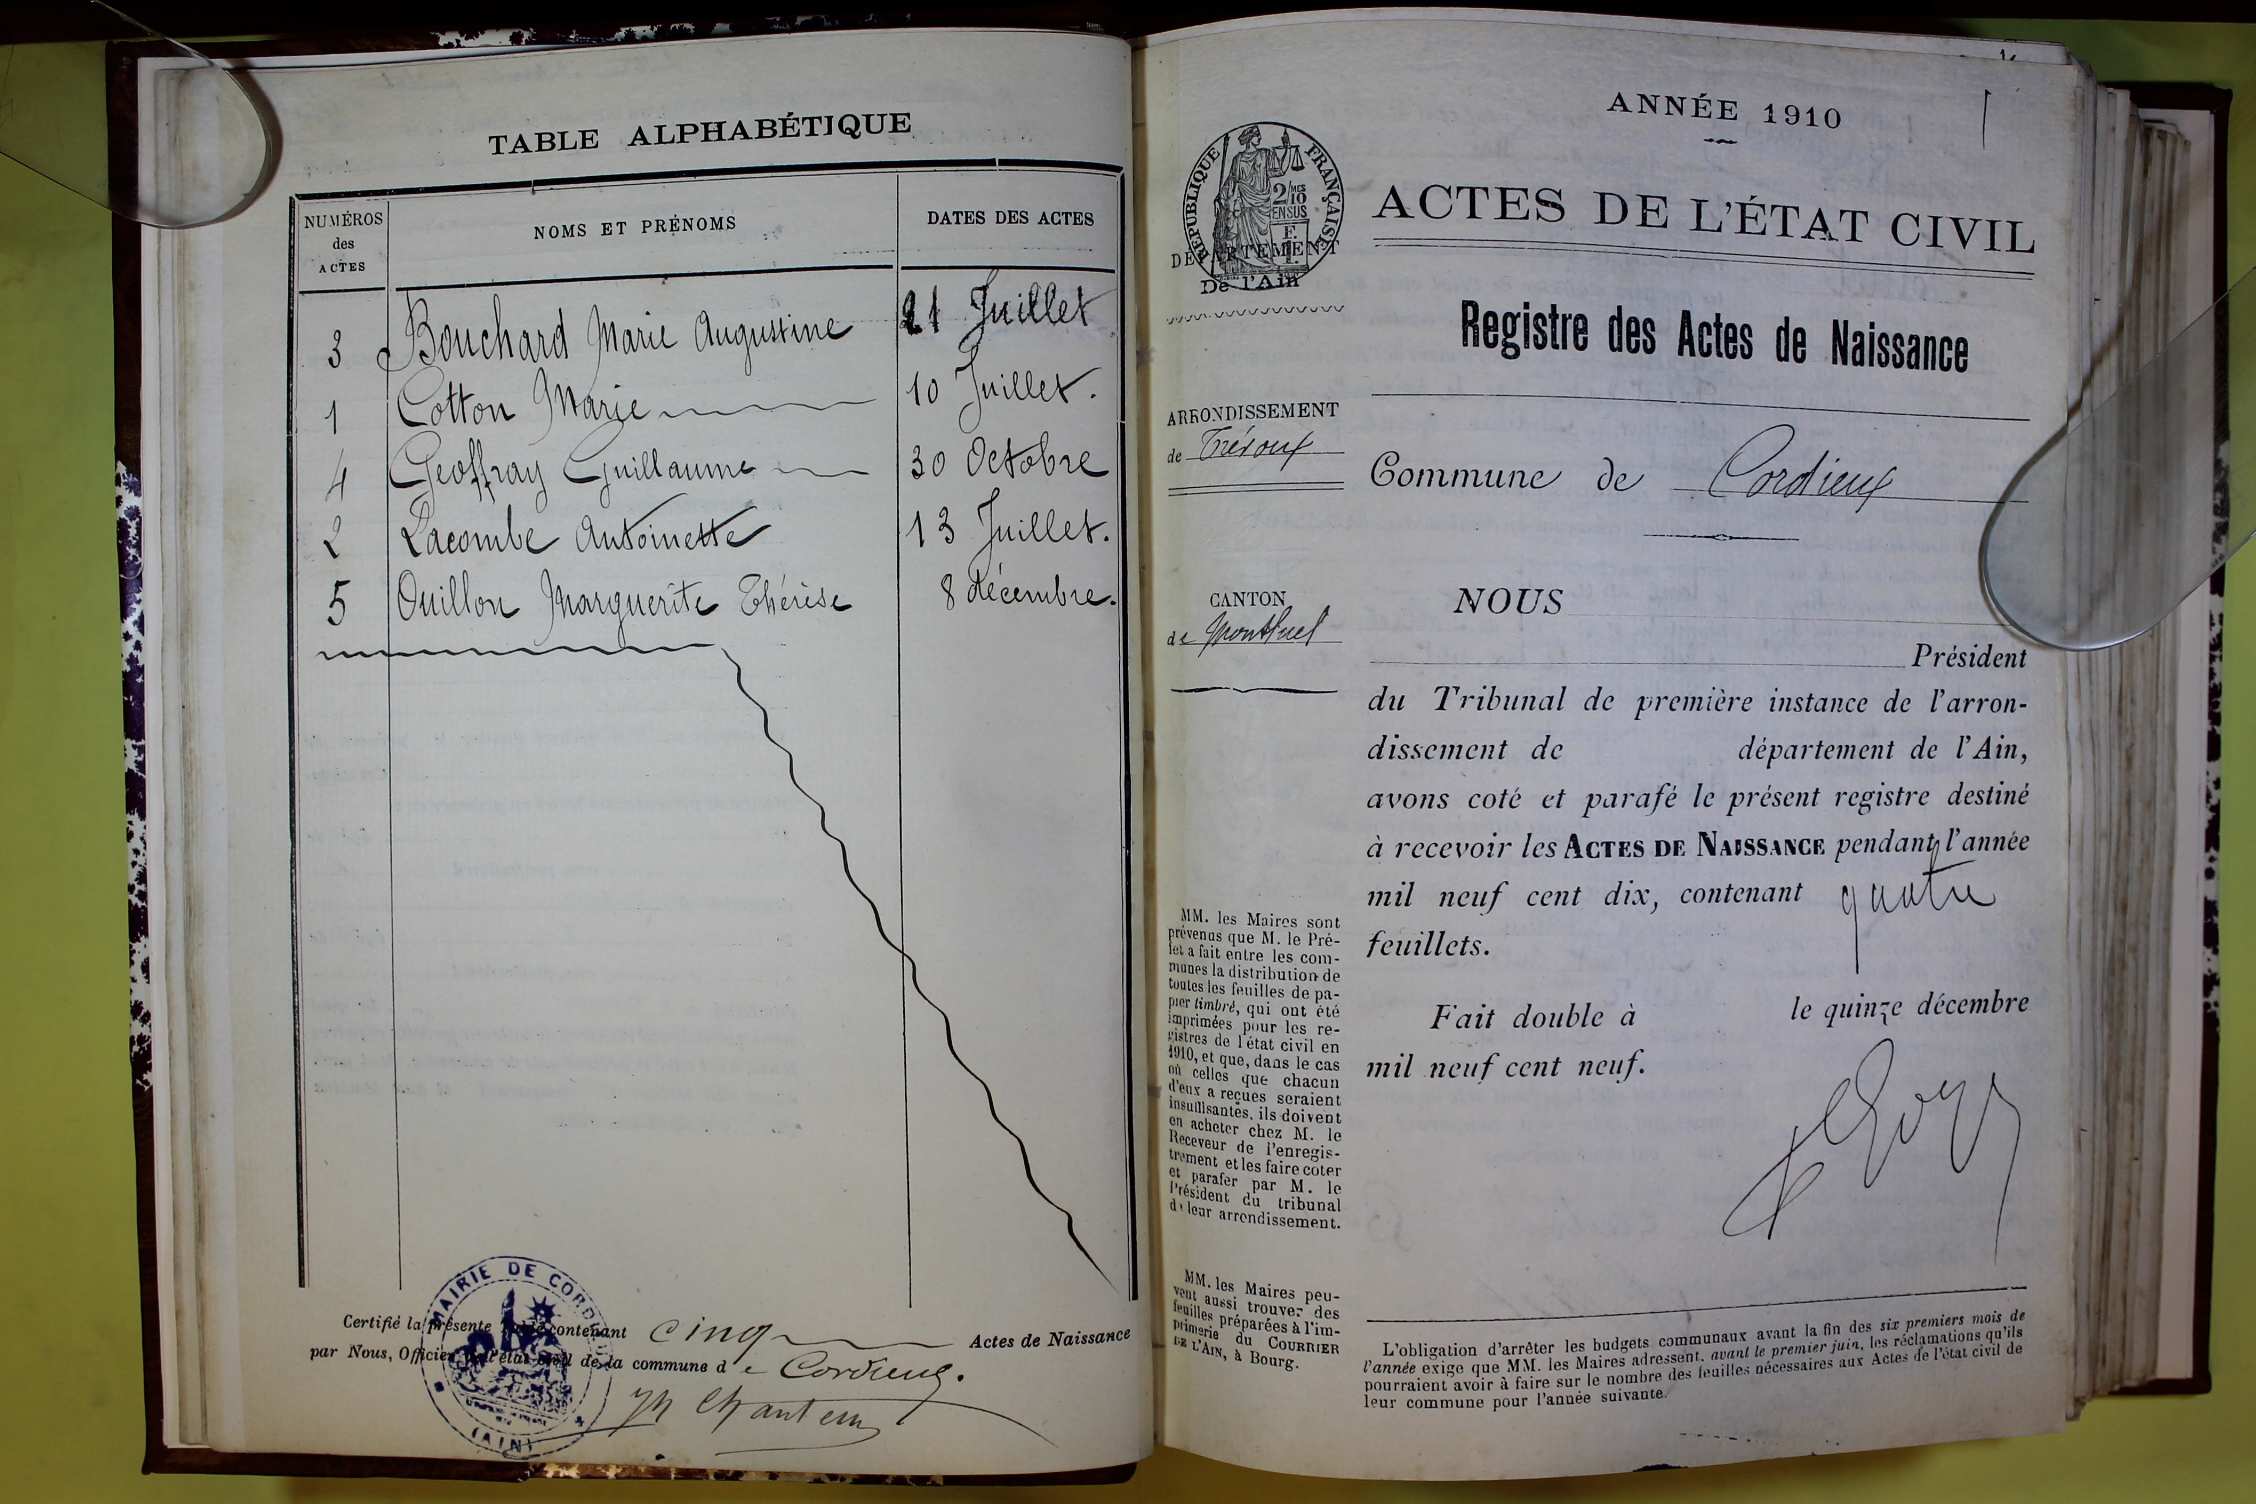 TABLE ALPHABÉTIQUE
NUMÉROS des ACTES
NOMS ET PRÉNOMS
DATES DES ACTES
3 Bouchard Marie Augustine 21 Juillet
1 Cotton Marie 10 Juillet.
4 Geoffray Guillaume 30 Octobre
2 Lacombe Antoinette 13 Juillet.
5 Ouillon Marguerite Thérèse 8 décembre.
Certifié la présente contenant cinq Actes de Naissance
par Nous, Officier de l'état civil de la commune de Cordieux.
MAIRIE DE CORDIEUX
(AIN)
ANNÉE 1910
RÉPUBLIQUE FRANÇAISE
2/10 MES
EN SUS
DÉPARTEMENT
De l'Ain
ACTES DE L'ÉTAT CIVIL
Registre des Actes de Naissance
ARRONDISSEMENT
de Trévoux
Commune de Cordieux
CANTON
de Montluel
NOUS
Président
du Tribunal de première instance de l'arron-
dissement de département de l'Ain,
avons coté et parafé le présent registre destiné
à recevoir les ACTES DE NAISSANCE pendant l'année
mil neuf cent dix, contenant quatre
feuillets.
Fait double à le quinze décembre
mil neuf cent neuf.
MM. les Maires sont
prévenus que M. le Pré-
fet a fait entre les com-
munes la distribution de
toutes les feuilles de pa-
pier timbré, qui ont été
imprimées pour les re-
gistres de l'état civil en
1910, et que, dans le cas
où celles que chacun
d'eux a reçues seraient
insuffisantes, ils doivent
en acheter chez M. le
Receveur de l'enregis-
trement et les faire coter
et parafer par M. le
Président du tribunal
de leur arrondissement.
MM. les Maires peu-
vent aussi trouver des
feuilles préparées à l'im-
primerie du COURRIER
DE L'AIN, à Bourg.
L'obligation d'arrêter les budgets communaux avant la fin des six premiers mois de
l'année exige que MM. les Maires adressent, avant le premier juin, les réclamations qu'ils
pourraient avoir à faire sur le nombre des feuilles nécessaires aux Actes de l'état civil de
leur commune pour l'année suivante.